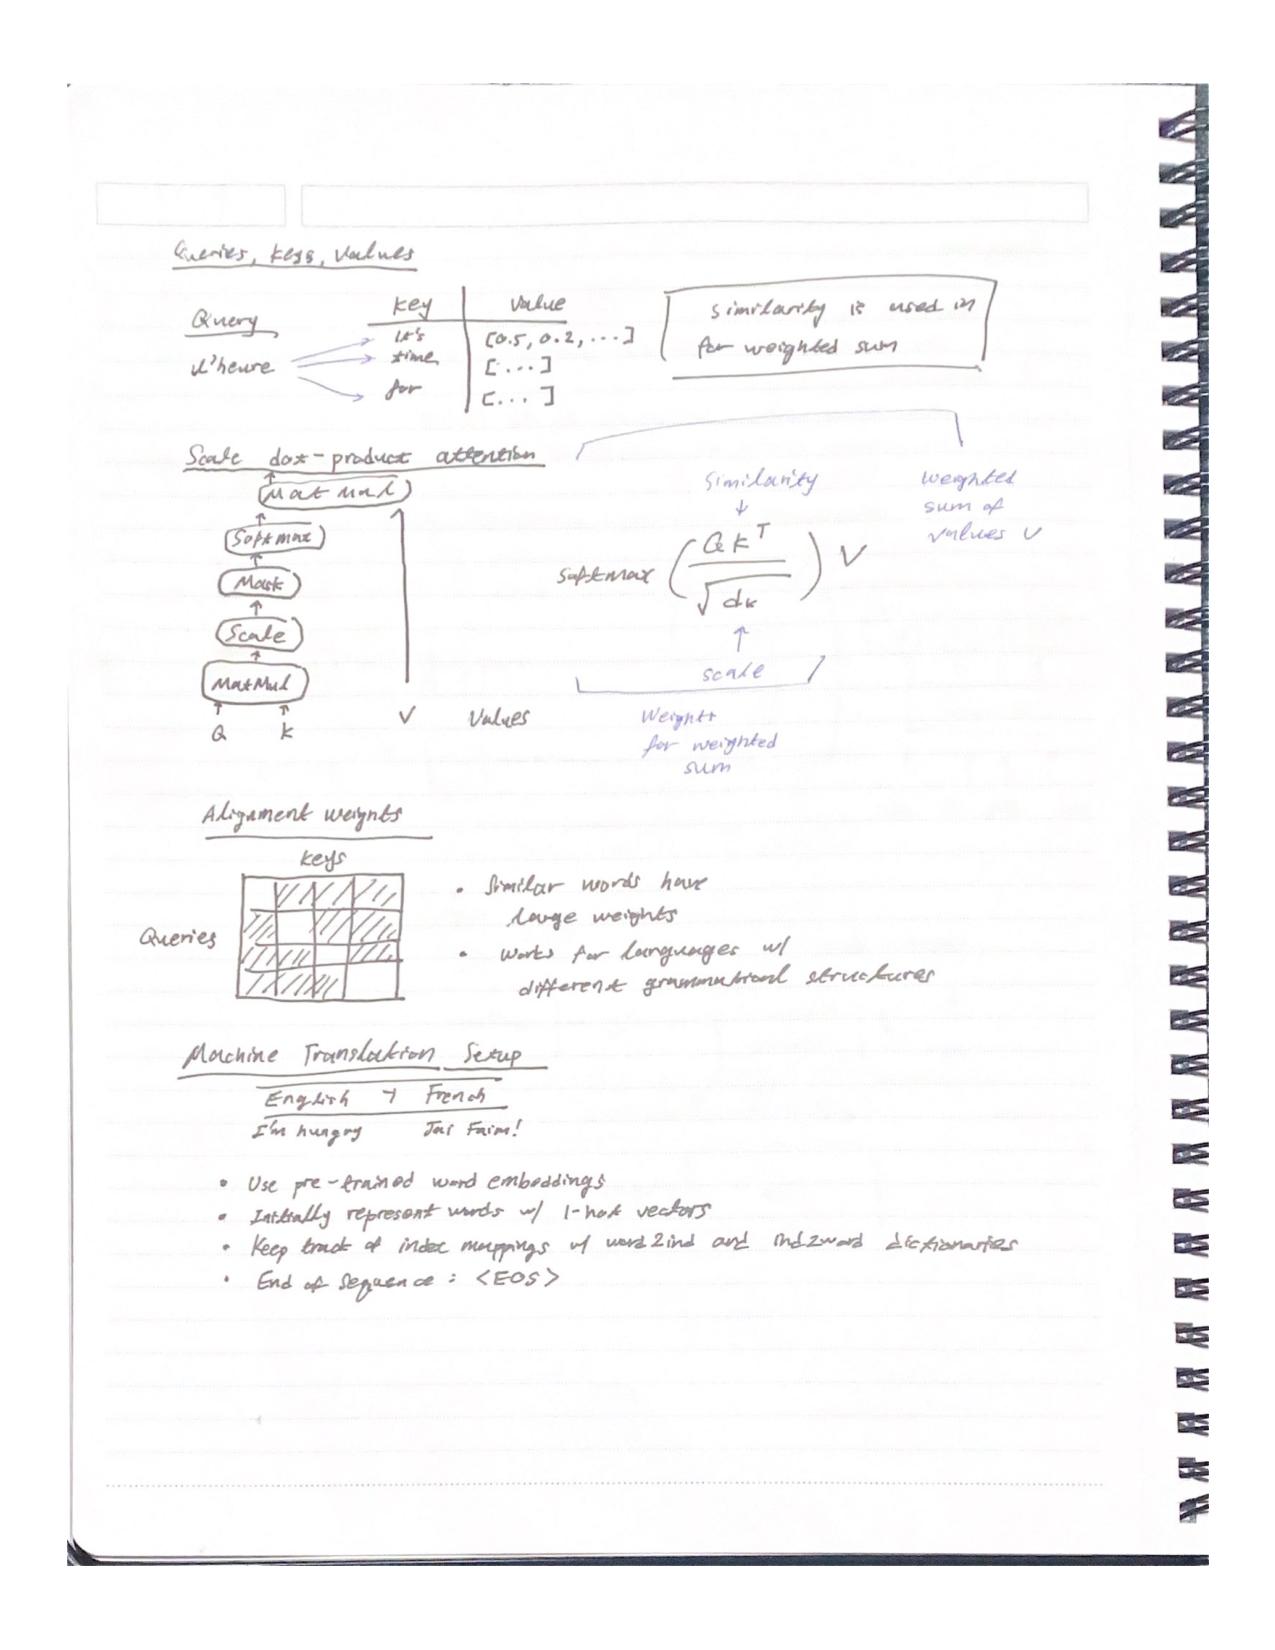 Queries, Keys, Values
Query
l'heure
Key Value
it's [0.5, 0.2, ...]
time [...]
for [... ]
Similarity is used in
for weighted sum
Scale dot-product attention
MatMul
Softmax
Mask
Scale
MatMul
Q K V Values
Similarity
↓
Softmax (QK^T / √dk) V
↑
scale
Weights
for weighted
sum
Weighted
sum of
values V
Alignment weights
Keys
Queries
• Similar words have
large weights
• Works for languages w/
different grammatical structures
Machine Translation Setup
English → French
I'm hungry J'ai Faim!
• Use pre-trained word embeddings
• Initially represent words w/ 1-hot vectors
• Keep track of index mappings w/ word2ind and ind2word dictionaries
• End of sequence : <EOS>